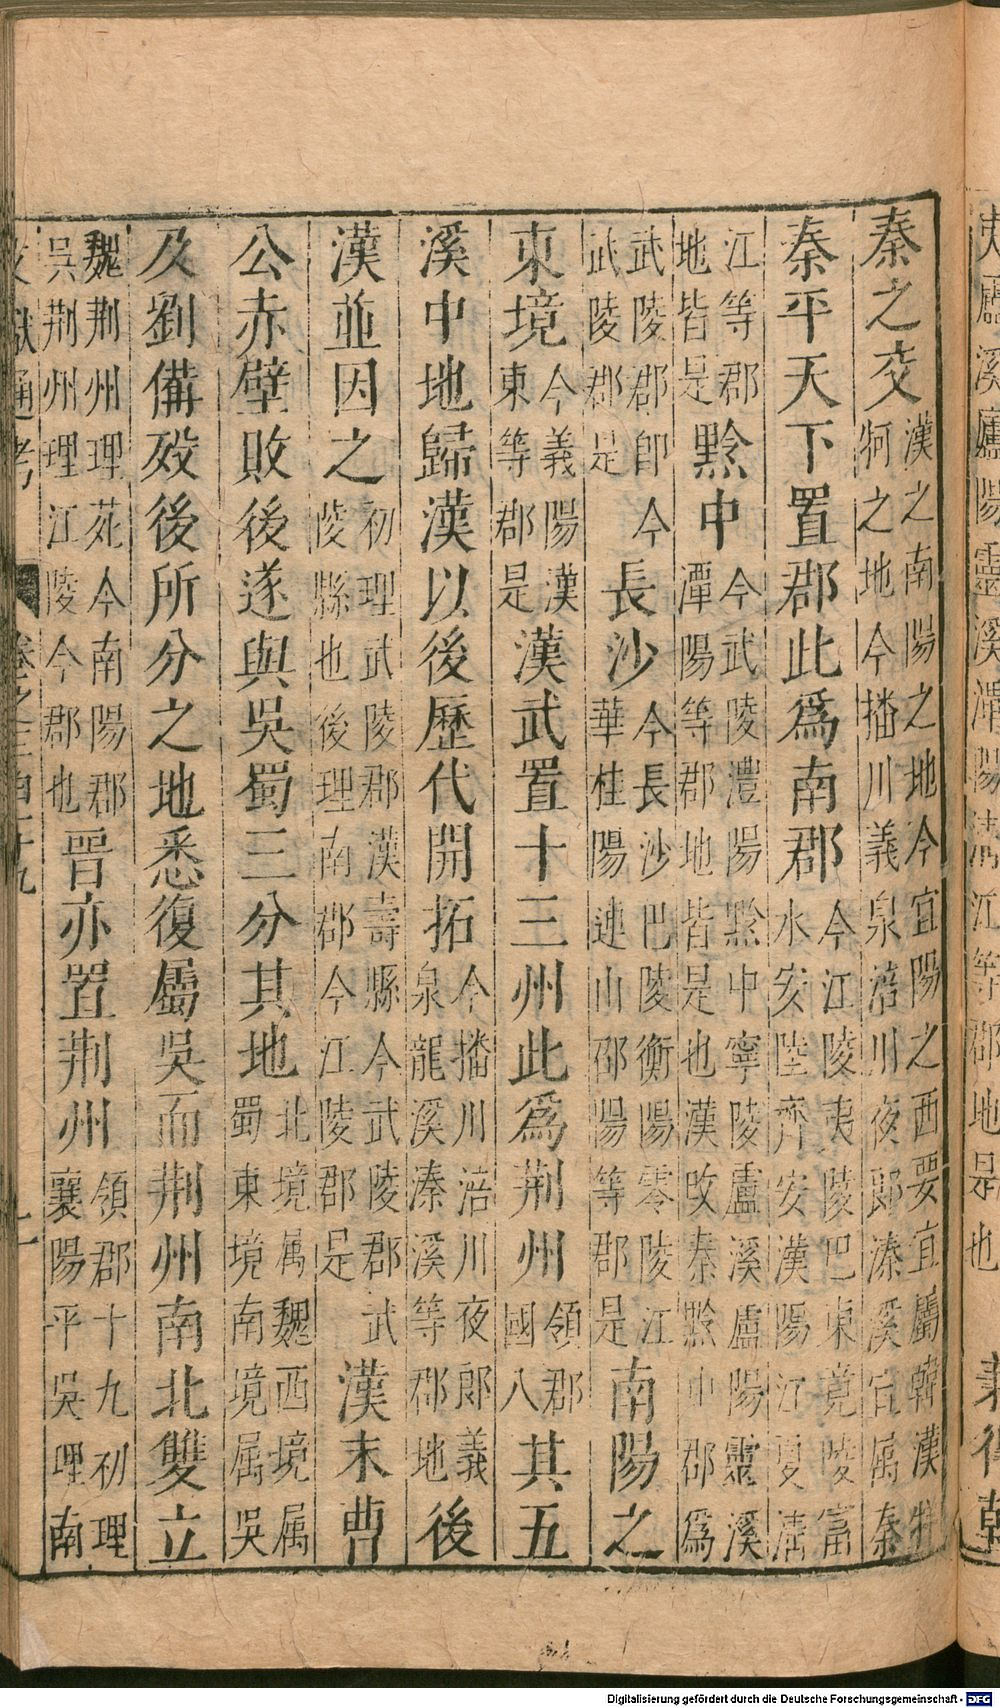 溪盧陽靈溪潭陽清江等郡地是也
秦之交漢之南陽之地今宜陽之西要宜屬韓漢牂牁之地今播川義泉涪川夜郎溱溪宜属秦
秦平天下置郡此爲南郡今江陵夷陵巴東竟陵富水安陸齊安漢陽江夏清
江等郡地皆是黔中今武陵澧陽黔中寧陵盧溪盧陽靈溪潭陽等郡地皆是也漢改秦黔中郡爲
武陵郡即今武陵郡是長沙今長沙巴陵衡陽零陵江華桂陽連山邵陽等郡是南陽之
東境今義陽漢東等郡是漢武置十三州此爲荆州領郡國八其五
溪中地歸漢以後歷代開拓今播川涪川夜郎義泉龍溪溱溪等郡地後
漢並因之初理武陵郡漢壽縣今武陵郡武陵縣也後理南郡今江陵郡是漢末曹
公赤壁敗後遂與吳蜀三分其地北境属魏西境属蜀東境南境属吳
及劉備歿後所分之地悉復屬吳而荆州南北雙立
魏荆州理苑今南陽郡吳荆州理江陵今郡也晉亦置荆州領郡十九初理襄陽平吳理南
文獻通考 卷之三百十九
Digitalisierung gefördert durch die Deutsche Forschungsgemeinschaft - DFG